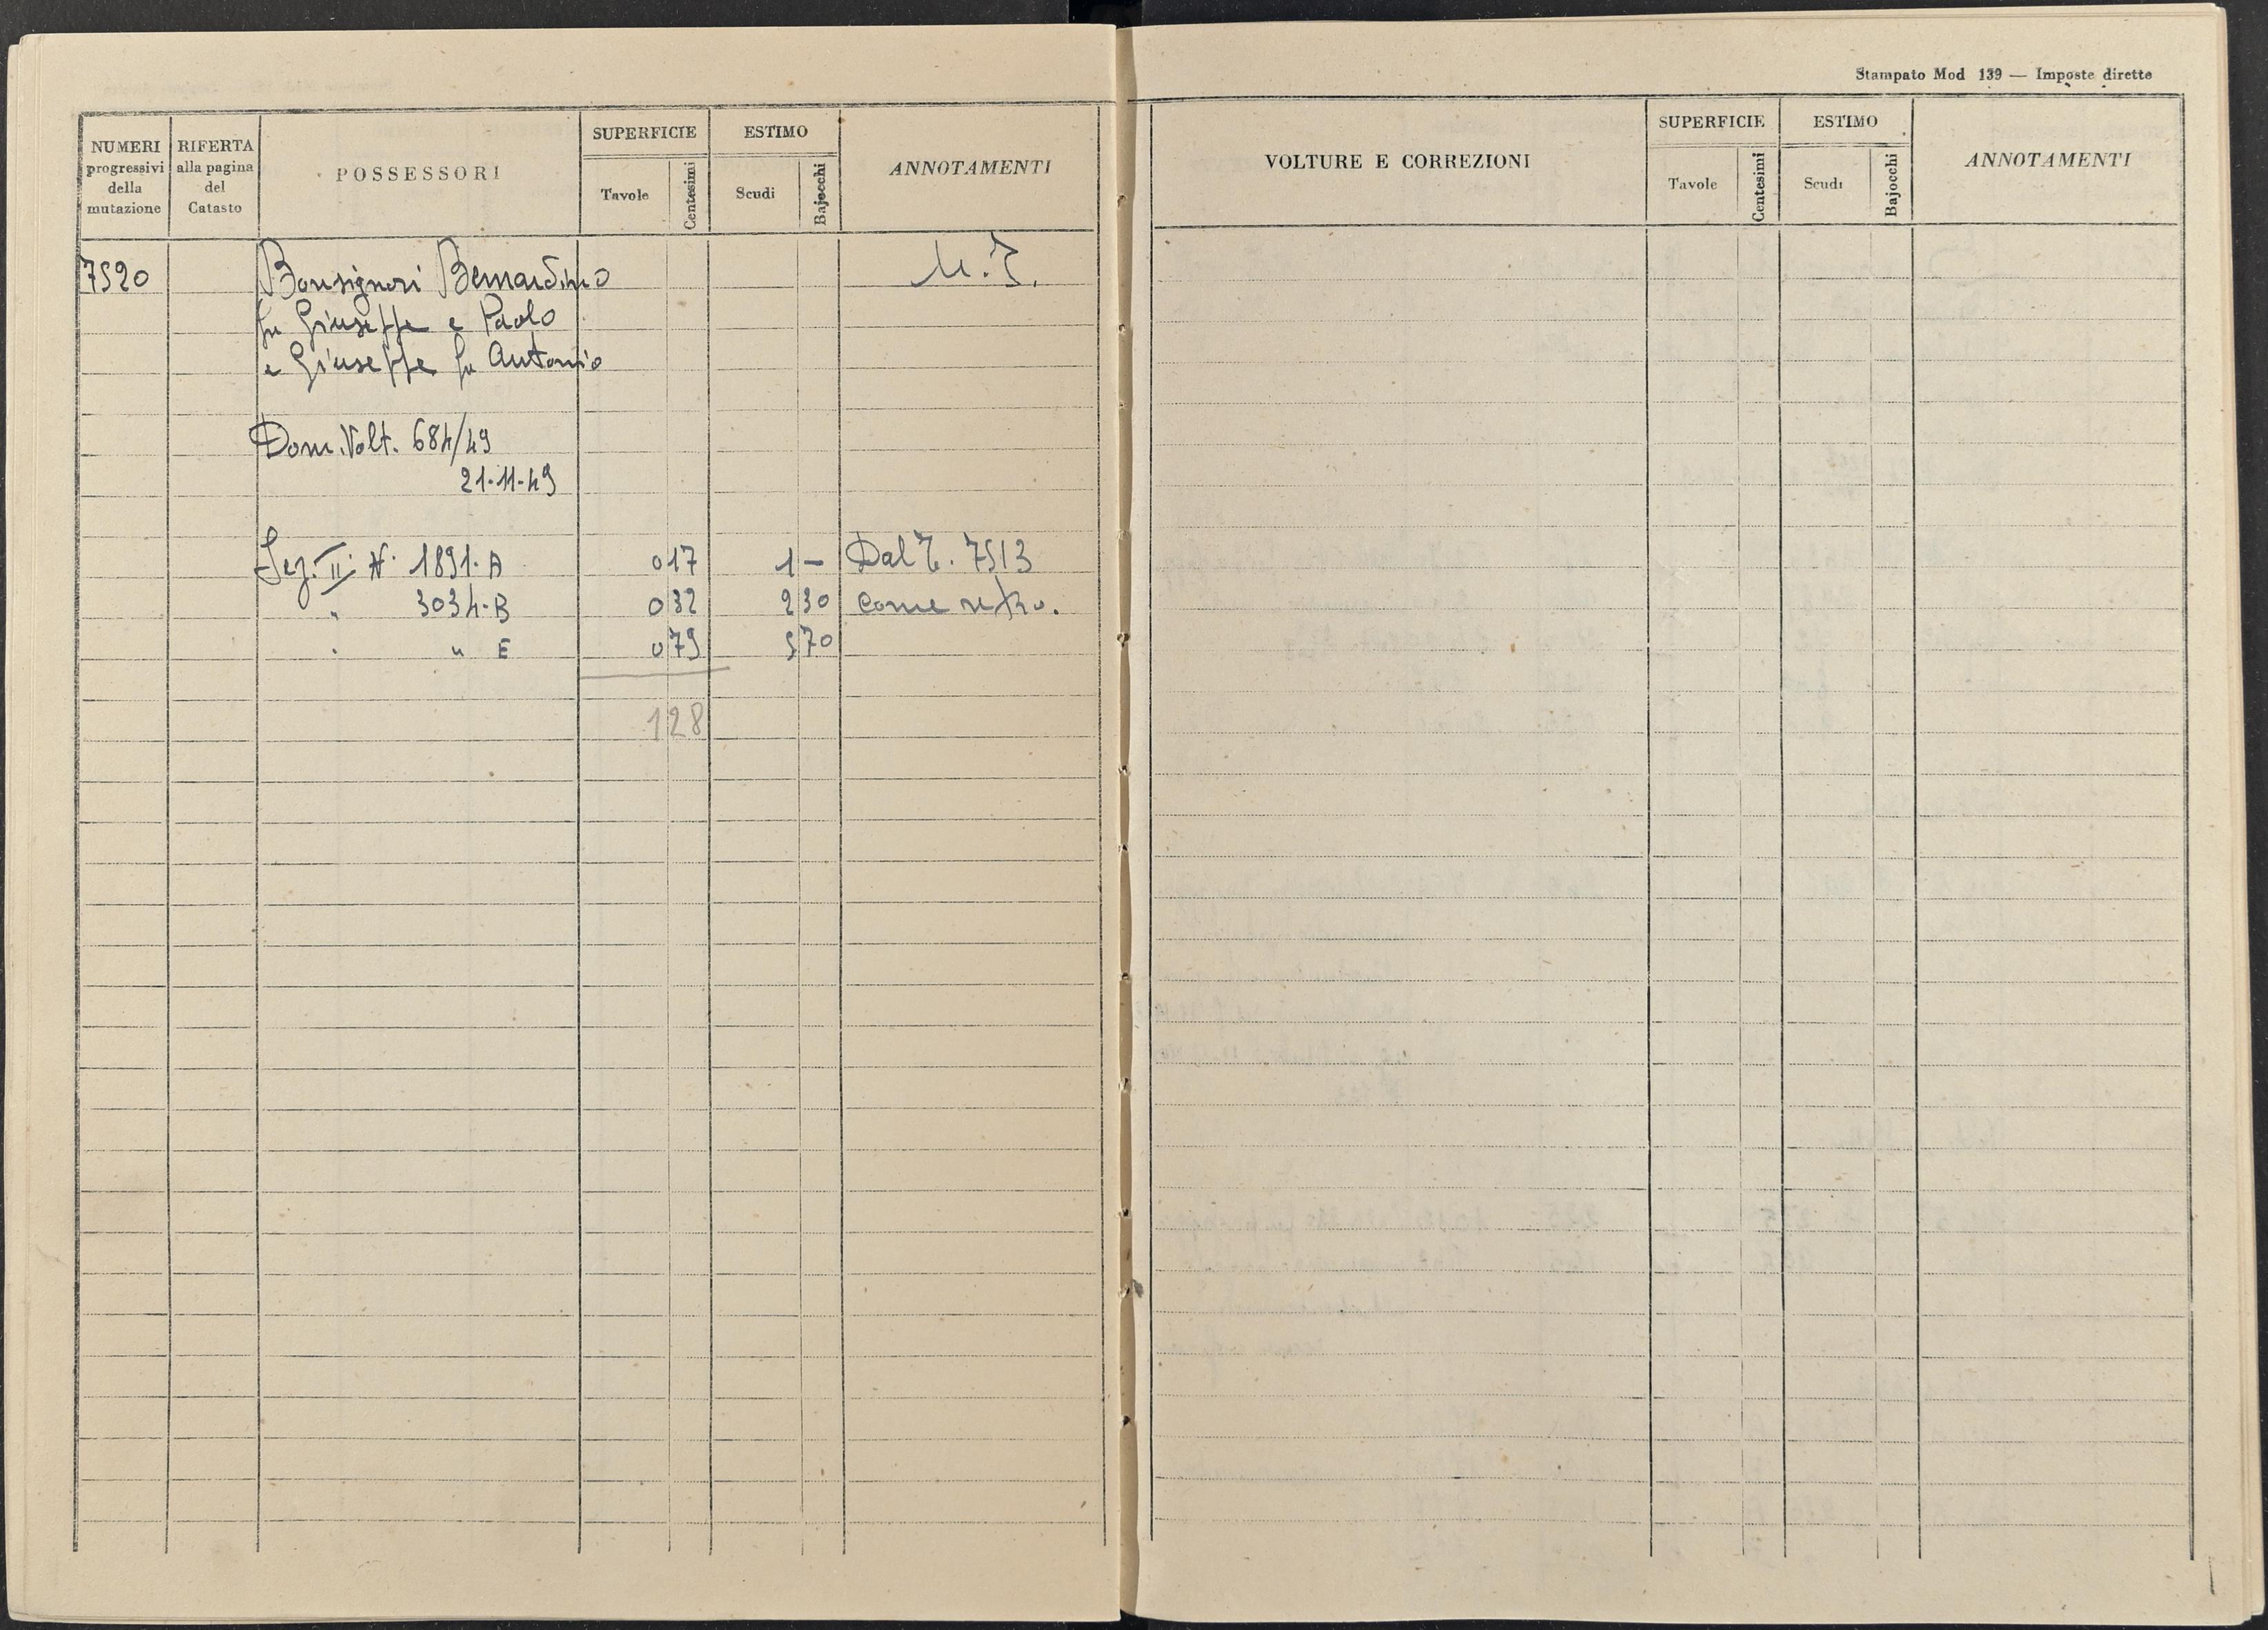 Stampato Mod 139 — Imposte dirette
NUMERI progressivi della mutazione
RIFERTA alla pagina del Catasto
POSSESSORI
SUPERFICIE
Tavole
Centesimi
ESTIMO
Scudi
Bajocchi
ANNOTAMENTI
7520
Bonsignori Bernardino
fu Giuseppe e Paolo
e Giuseppe fu Antonio
Dom. Volt. 684/49
21-11-49
Sez. II N. 1891-A 0 17 1 - Dal T. 7513
" 3034-B 0 32 2 30 come retro.
" " E 0 79 5 70
1 28
VOLTURE E CORREZIONI
SUPERFICIE
Tavole
Centesimi
ESTIMO
Scudi
Bajocchi
ANNOTAMENTI